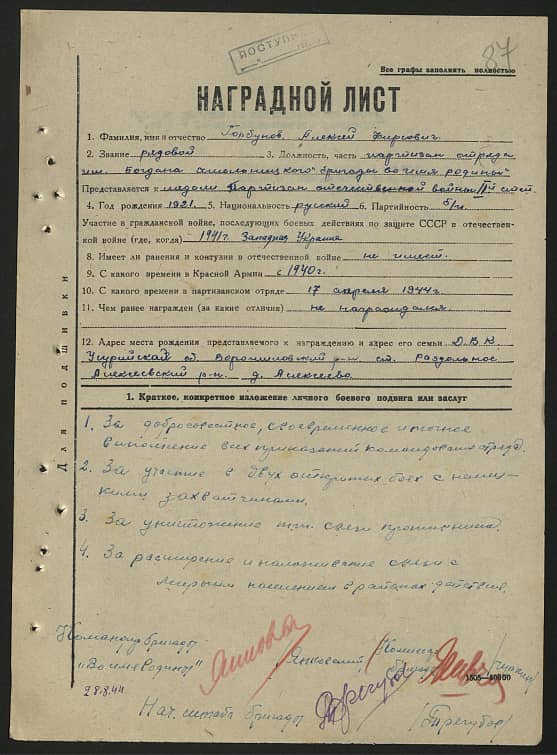 ПОСТУПИЛ
87
Все графы заполнять полностью
НАГРАДНОЙ ЛИСТ
1. Фамилия, имя и отчество Горбунов Алексей Фирсович
2. Звание рядовой 3. Должность, часть партизан отряда
им. Богдана Хмельницкого бригады во имя родины
Представляется к медали Партизан отечественной войны II й ст.
4. Год рождения 1921. 5. Национальность русский 6. Партийность б/п
Участие в гражданской войне, последующих боевых действиях по защите СССР в отечествен-
ной войне (где, когда) 1941 г. Западная Украина
8. Имеет ли ранения и контузии в отечественной войне не имеет.
9. С какого времени в Красной Армии с 1940 г.
10. С какого времени в партизанском отряде 17 апреля 1944 г.
11. Чем ранее награжден (за какие отличия) не награждался.
12. Адрес места рождения представляемого к награждению и адрес его семьи Д.В.К.
Усурийская Ворошиловский р-н. ст. Раздольное
Алексеевский р-н. д. Алексеево
Для подшивки
1. Краткое, конкретное изложение личного боевого подвига или заслуг
1. За добросовестное, своевременное и точное
выполнение всех приказаний командования отряда.
2. За участие в двух открытых боях с немец-
кими захватчиками.
3. За уничтожение связи противника.
4. За расширение и налаживание связи с
мирным населением в районах действия.
Командир бригады
"Во имя Родины" Янковский
28.8.44
1505-40000
Нач. штаба бригады /Трегубов/